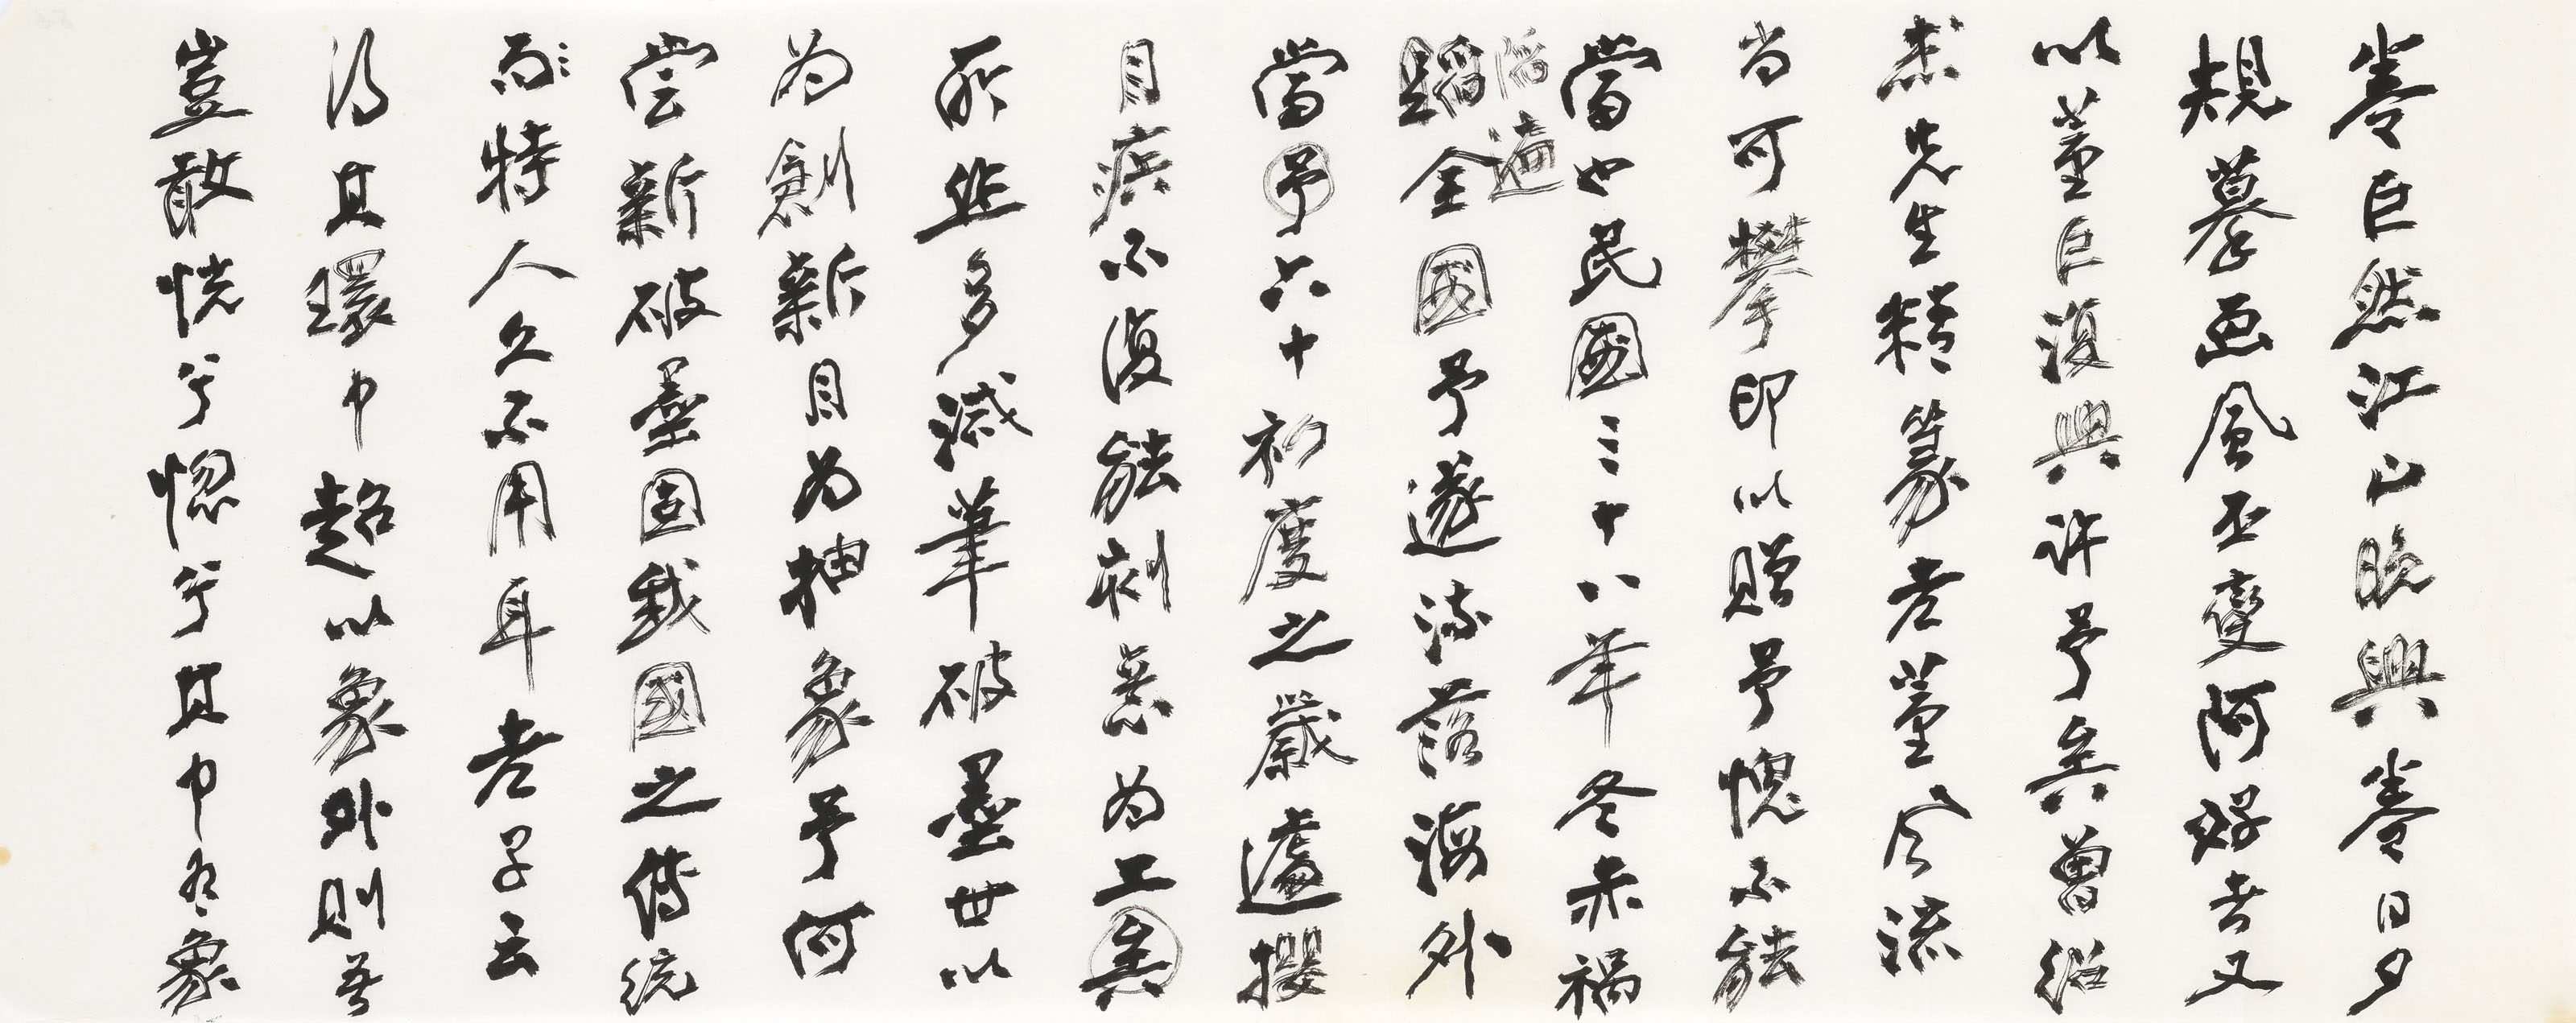 卷巨然江山晚興卷日夕
規摹畫風丕變阿好者又
以董巨復興許予矣曾紹
杰先生精篆老董風流
尚可攀印以贈予愧不能
當也民國三十八年冬赤禍
滔遍
蹈全國予遂流落海外
當予六十初度之歲遽攖
目疾不復能刻意為工矣
所作多減筆破墨世以
為創新目為抽象予何
嘗新破墨固我國之傳統
而特人久不用耳老子云
得其環中超以象外則吾
豈敢恍兮惚兮其中有象